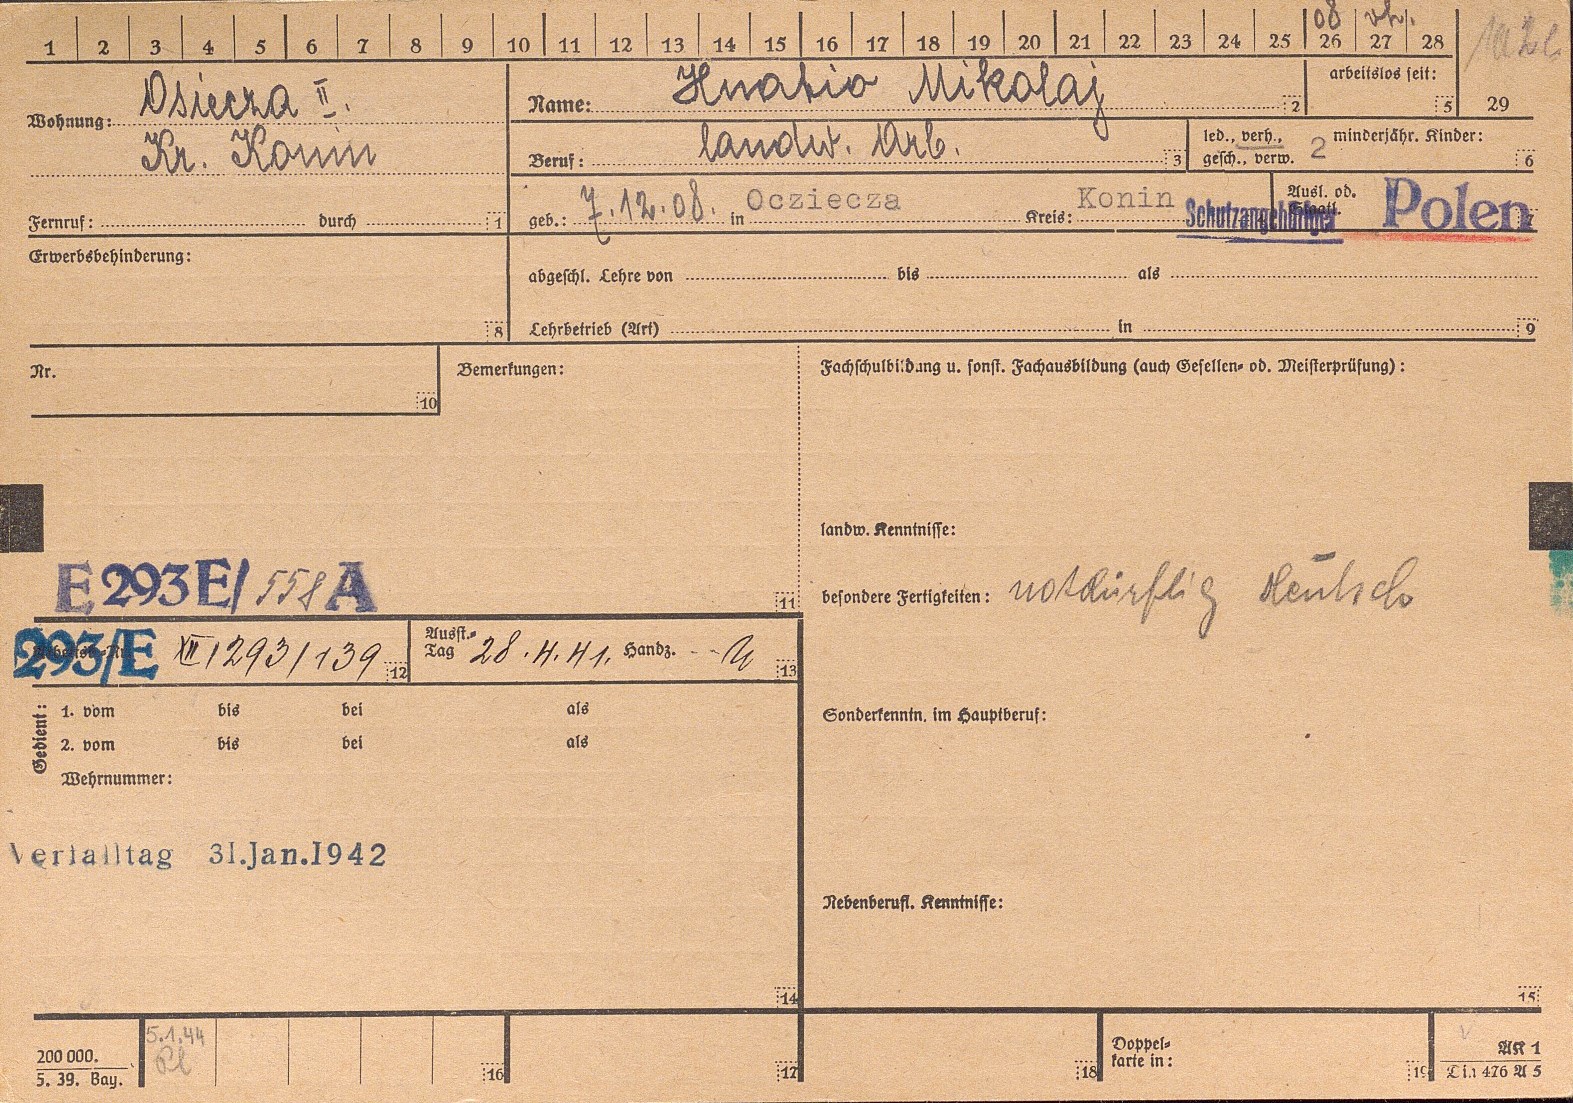 1 2 3 4 5 6 7 8 9 10 11 12 13 14 15 16 17 18 19 20 21 22 23 24 25 26 27 28
08 vh.
arbeitslos seit: 5
29
Wohnung: Osiecza II.
Kr. Konin
Name: Hnatio Mikolaj 2
Beruf: landw. Arb. 3
led., verh., 2 minderjähr. Kinder:
gesch., verw. 6
Fernruf: durch 1
geb.: 7.12.08. in Ocziecza Kreis: Konin
Schutzangehöriger
Ausl. od.
Polen
Erwerbsbehinderung:
8
abgeschl. Lehre von bis als
Lehrbetrieb (Art) in 9
Nr.
10
Bemerkungen:
Fachschulbildung u. sonst. Fachausbildung (auch Gesellen- od. Meisterprüfung):
landw. Kenntnisse:
E 293 E/ 558 A
11
besondere Fertigkeiten: notdürftig deutsch
293/E XII 1293/139 12
Ausst.-
Tag 28.4.41. Handz. 13
Gedient:
1. vom bis bei als
2. vom bis bei als
Wehrnummer:
Sonderkenntn. im Hauptberuf:
Verfalltag 31.Jan.1942
Nebenberufl. Kenntnisse:
14
15
200 000.
5. 39. Bay.
5.1.44
Pl
16
17
18
Doppel-
karte in:
19
AK 1
Din 476 A 5